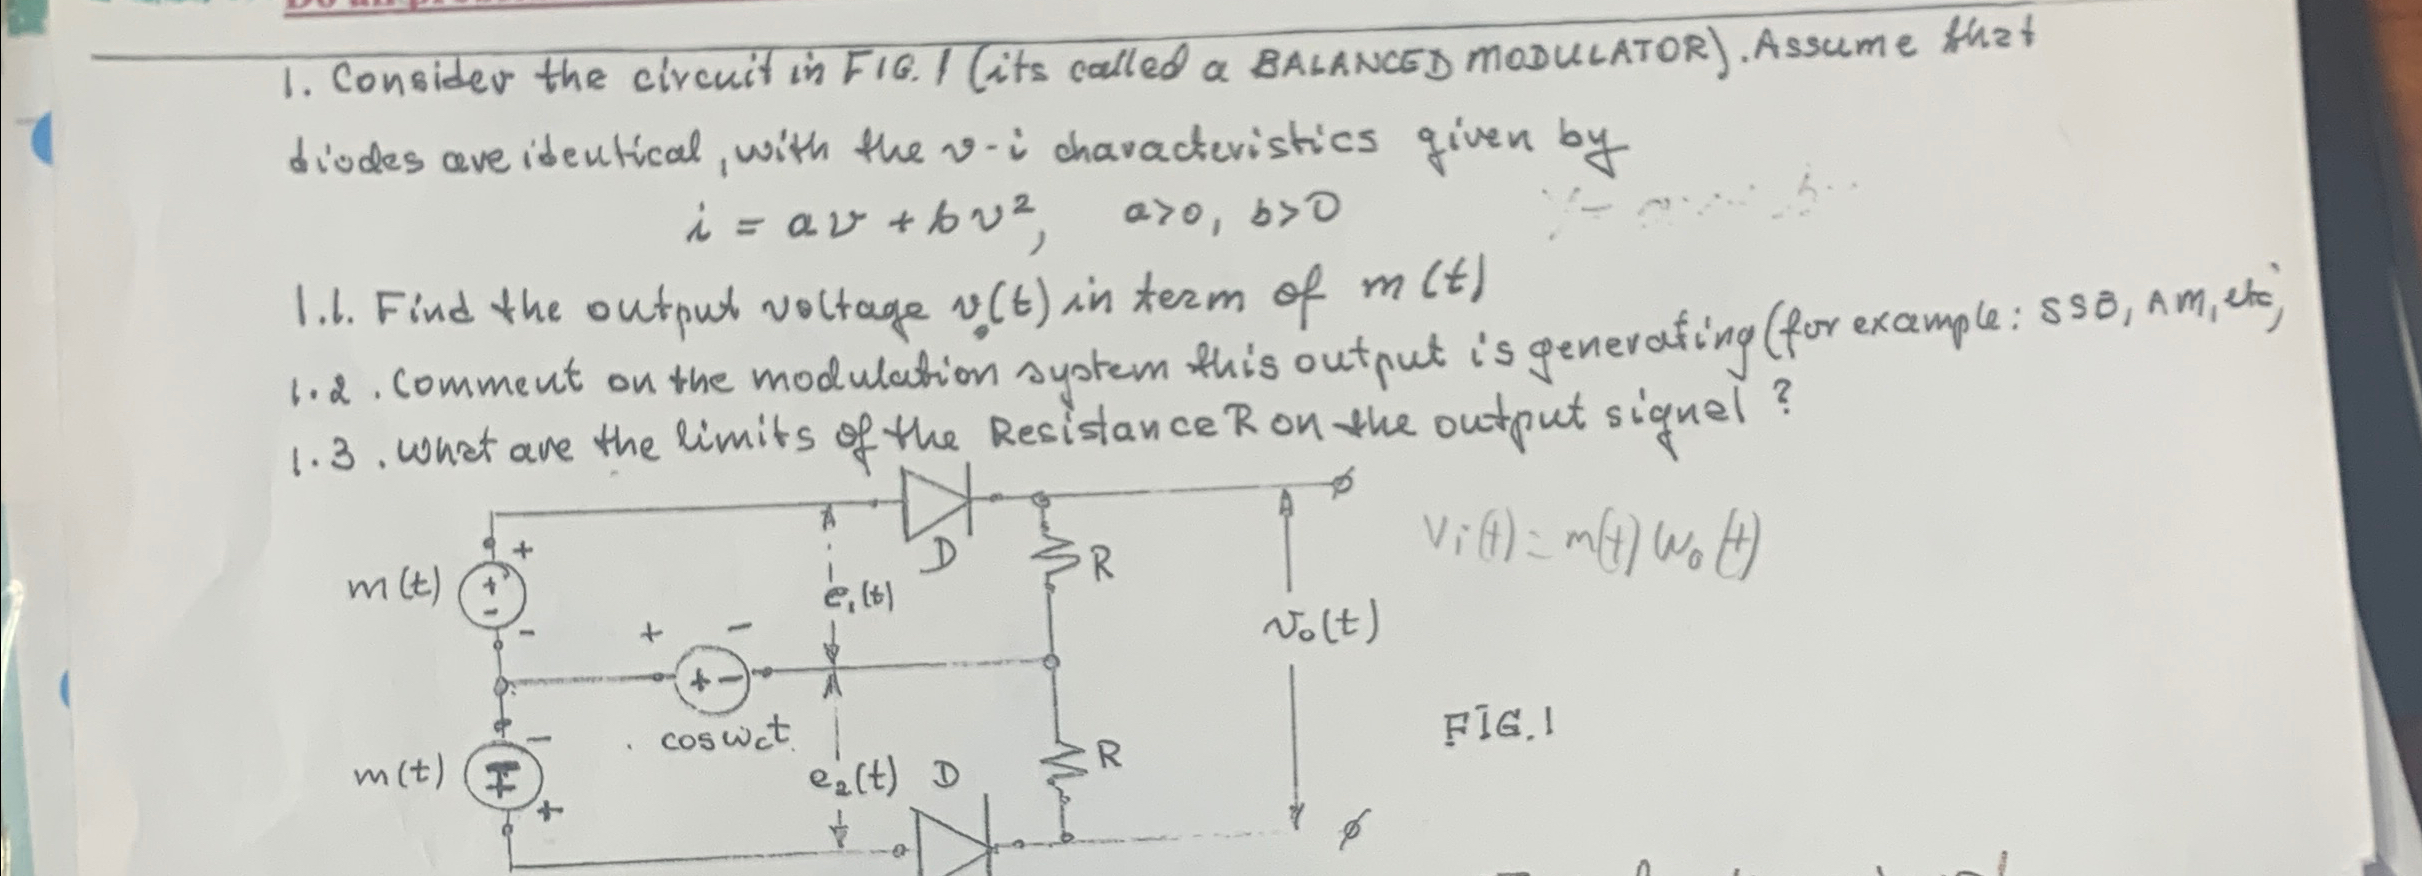 1. Consider the circuit in FIG. 1 (its called a BALANCED MODULATOR). Assume that
diodes are identical, with the v-i characteristics given by
i = av + bv², a>0, b>0
1.1. Find the output voltage v₀(t) in term of m(t)
1.2. Comment on the modulation system this output is generating (for example: SSB, AM, etc)
1.3. What are the limits of the Resistance R on the output signal?
D
R
m(t)
+
+
-
-
e₁(t)
Vi(t) = m(t) W₀(t)
v₀(t)
+
-
+ -
cos wct
FIG. 1
m(t)
-
+
e₂(t)
D
R